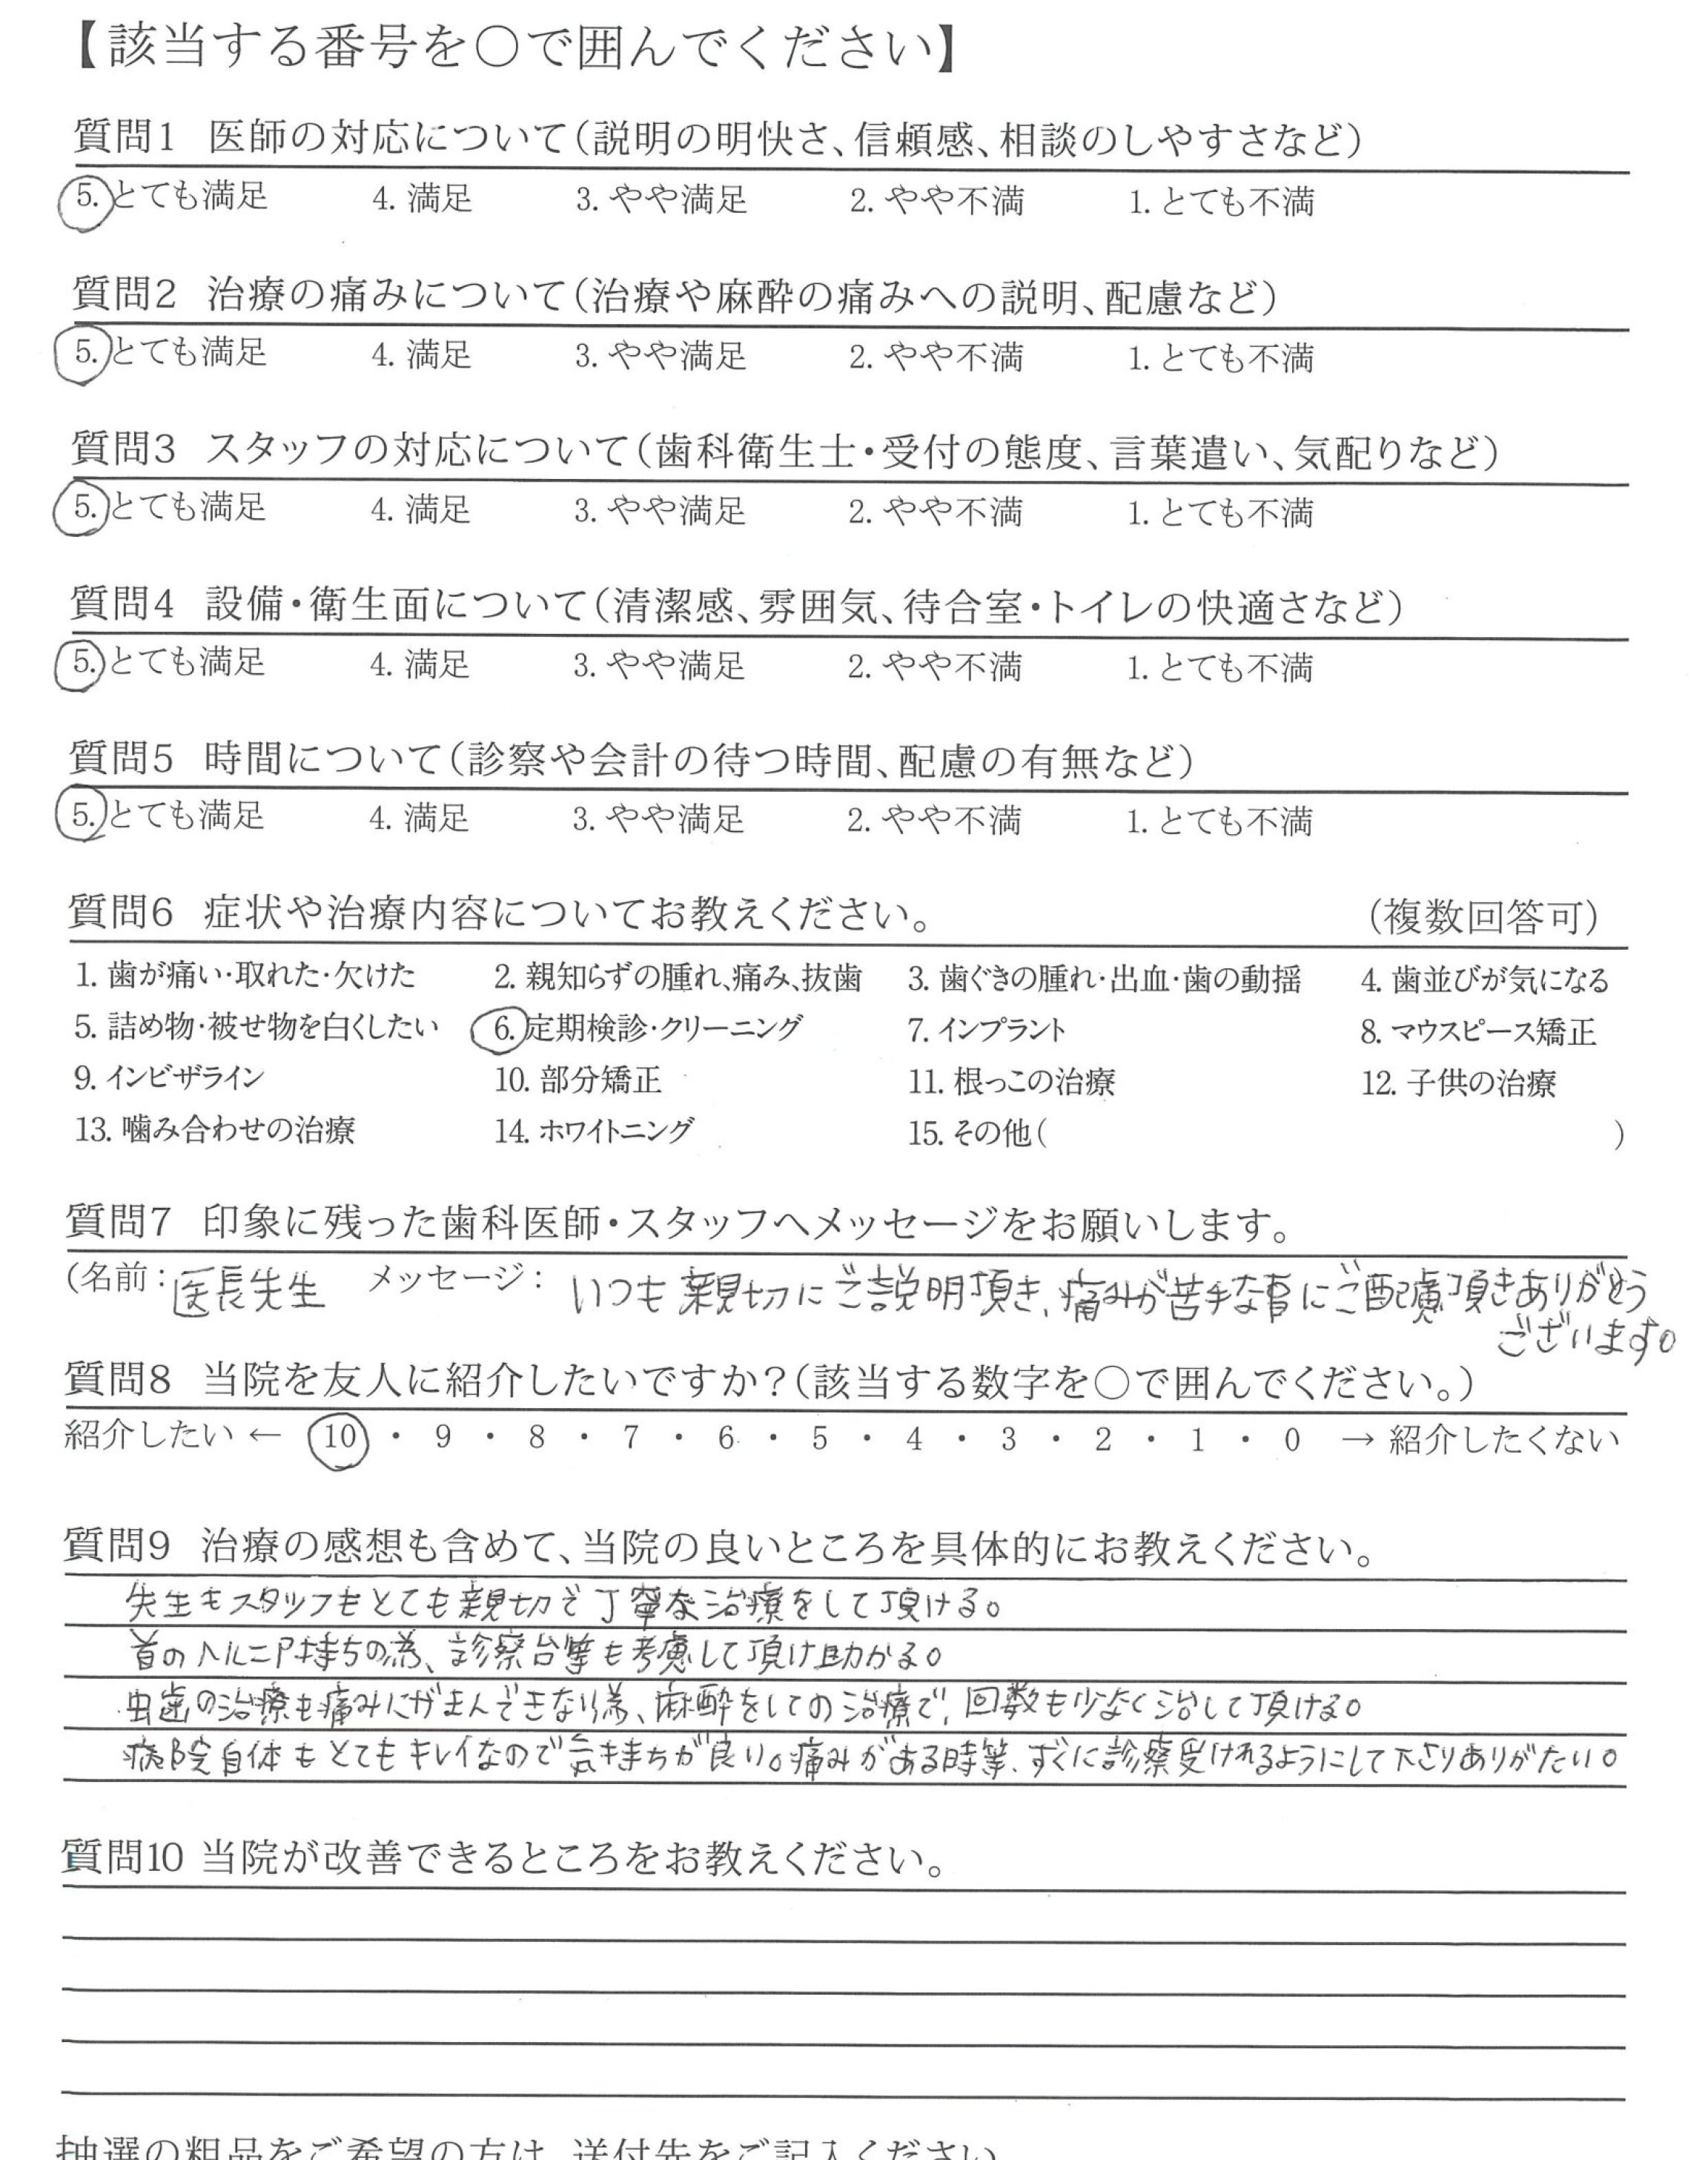 【該当する番号を〇で囲んでください】
質問1 医師の対応について(説明の明快さ、信頼感、相談のしやすさなど)
5. とても満足 4. 満足 3. やや満足 2. やや不満 1. とても不満
質問2 治療の痛みについて(治療や麻酔の痛みへの説明、配慮など)
5. とても満足 4. 満足 3. やや満足 2. やや不満 1. とても不満
質問3 スタッフの対応について(歯科衛生士・受付の態度、言葉遣い、気配りなど)
5. とても満足 4. 満足 3. やや満足 2. やや不満 1. とても不満
質問4 設備・衛生面について(清潔感、雰囲気、待合室・トイレの快適さなど)
5. とても満足 4. 満足 3. やや満足 2. やや不満 1. とても不満
質問5 時間について(診察や会計の待つ時間、配慮の有無など)
5. とても満足 4. 満足 3. やや満足 2. やや不満 1. とても不満
質問6 症状や治療内容についてお教えください。 (複数回答可)
1. 歯が痛い・取れた・欠けた 2. 親知らずの腫れ、痛み、抜歯 3. 歯ぐきの腫れ・出血・歯の動揺 4. 歯並びが気になる
5. 詰め物・被せ物を白くしたい 6. 定期検診・クリーニング 7. インプラント 8. マウスピース矯正
9. インビザライン 10. 部分矯正 11. 根っこの治療 12. 子供の治療
13. 噛み合わせの治療 14. ホワイトニング 15. その他( )
質問7 印象に残った歯科医師・スタッフへメッセージをお願いします。
(名前：医長先生 メッセージ：いつも親切にご説明頂き、痛みが苦手な事にご配慮頂きありがとう
ございます。
質問8 当院を友人に紹介したいですか？(該当する数字を〇で囲んでください。)
紹介したい ← 10 ・ 9 ・ 8 ・ 7 ・ 6 ・ 5 ・ 4 ・ 3 ・ 2 ・ 1 ・ 0 → 紹介したくない
質問9 治療の感想も含めて、当院の良いところを具体的にお教えください。
先生もスタッフもとても親切で丁寧な治療をして頂ける。
首のヘルニア持ちの為、診察台等も考慮して頂け助かる。
虫歯の治療も痛みにがまんできない為、麻酔をしての治療で、回数も少なく治して頂ける。
病院自体もとてもキレイなので気持ちが良い。痛みがある時等、すぐに診察受けれるようにして下さりありがたい。
質問10 当院が改善できるところをお教えください。
抽選の粗品をご希望の方は、送付先をご記入ください